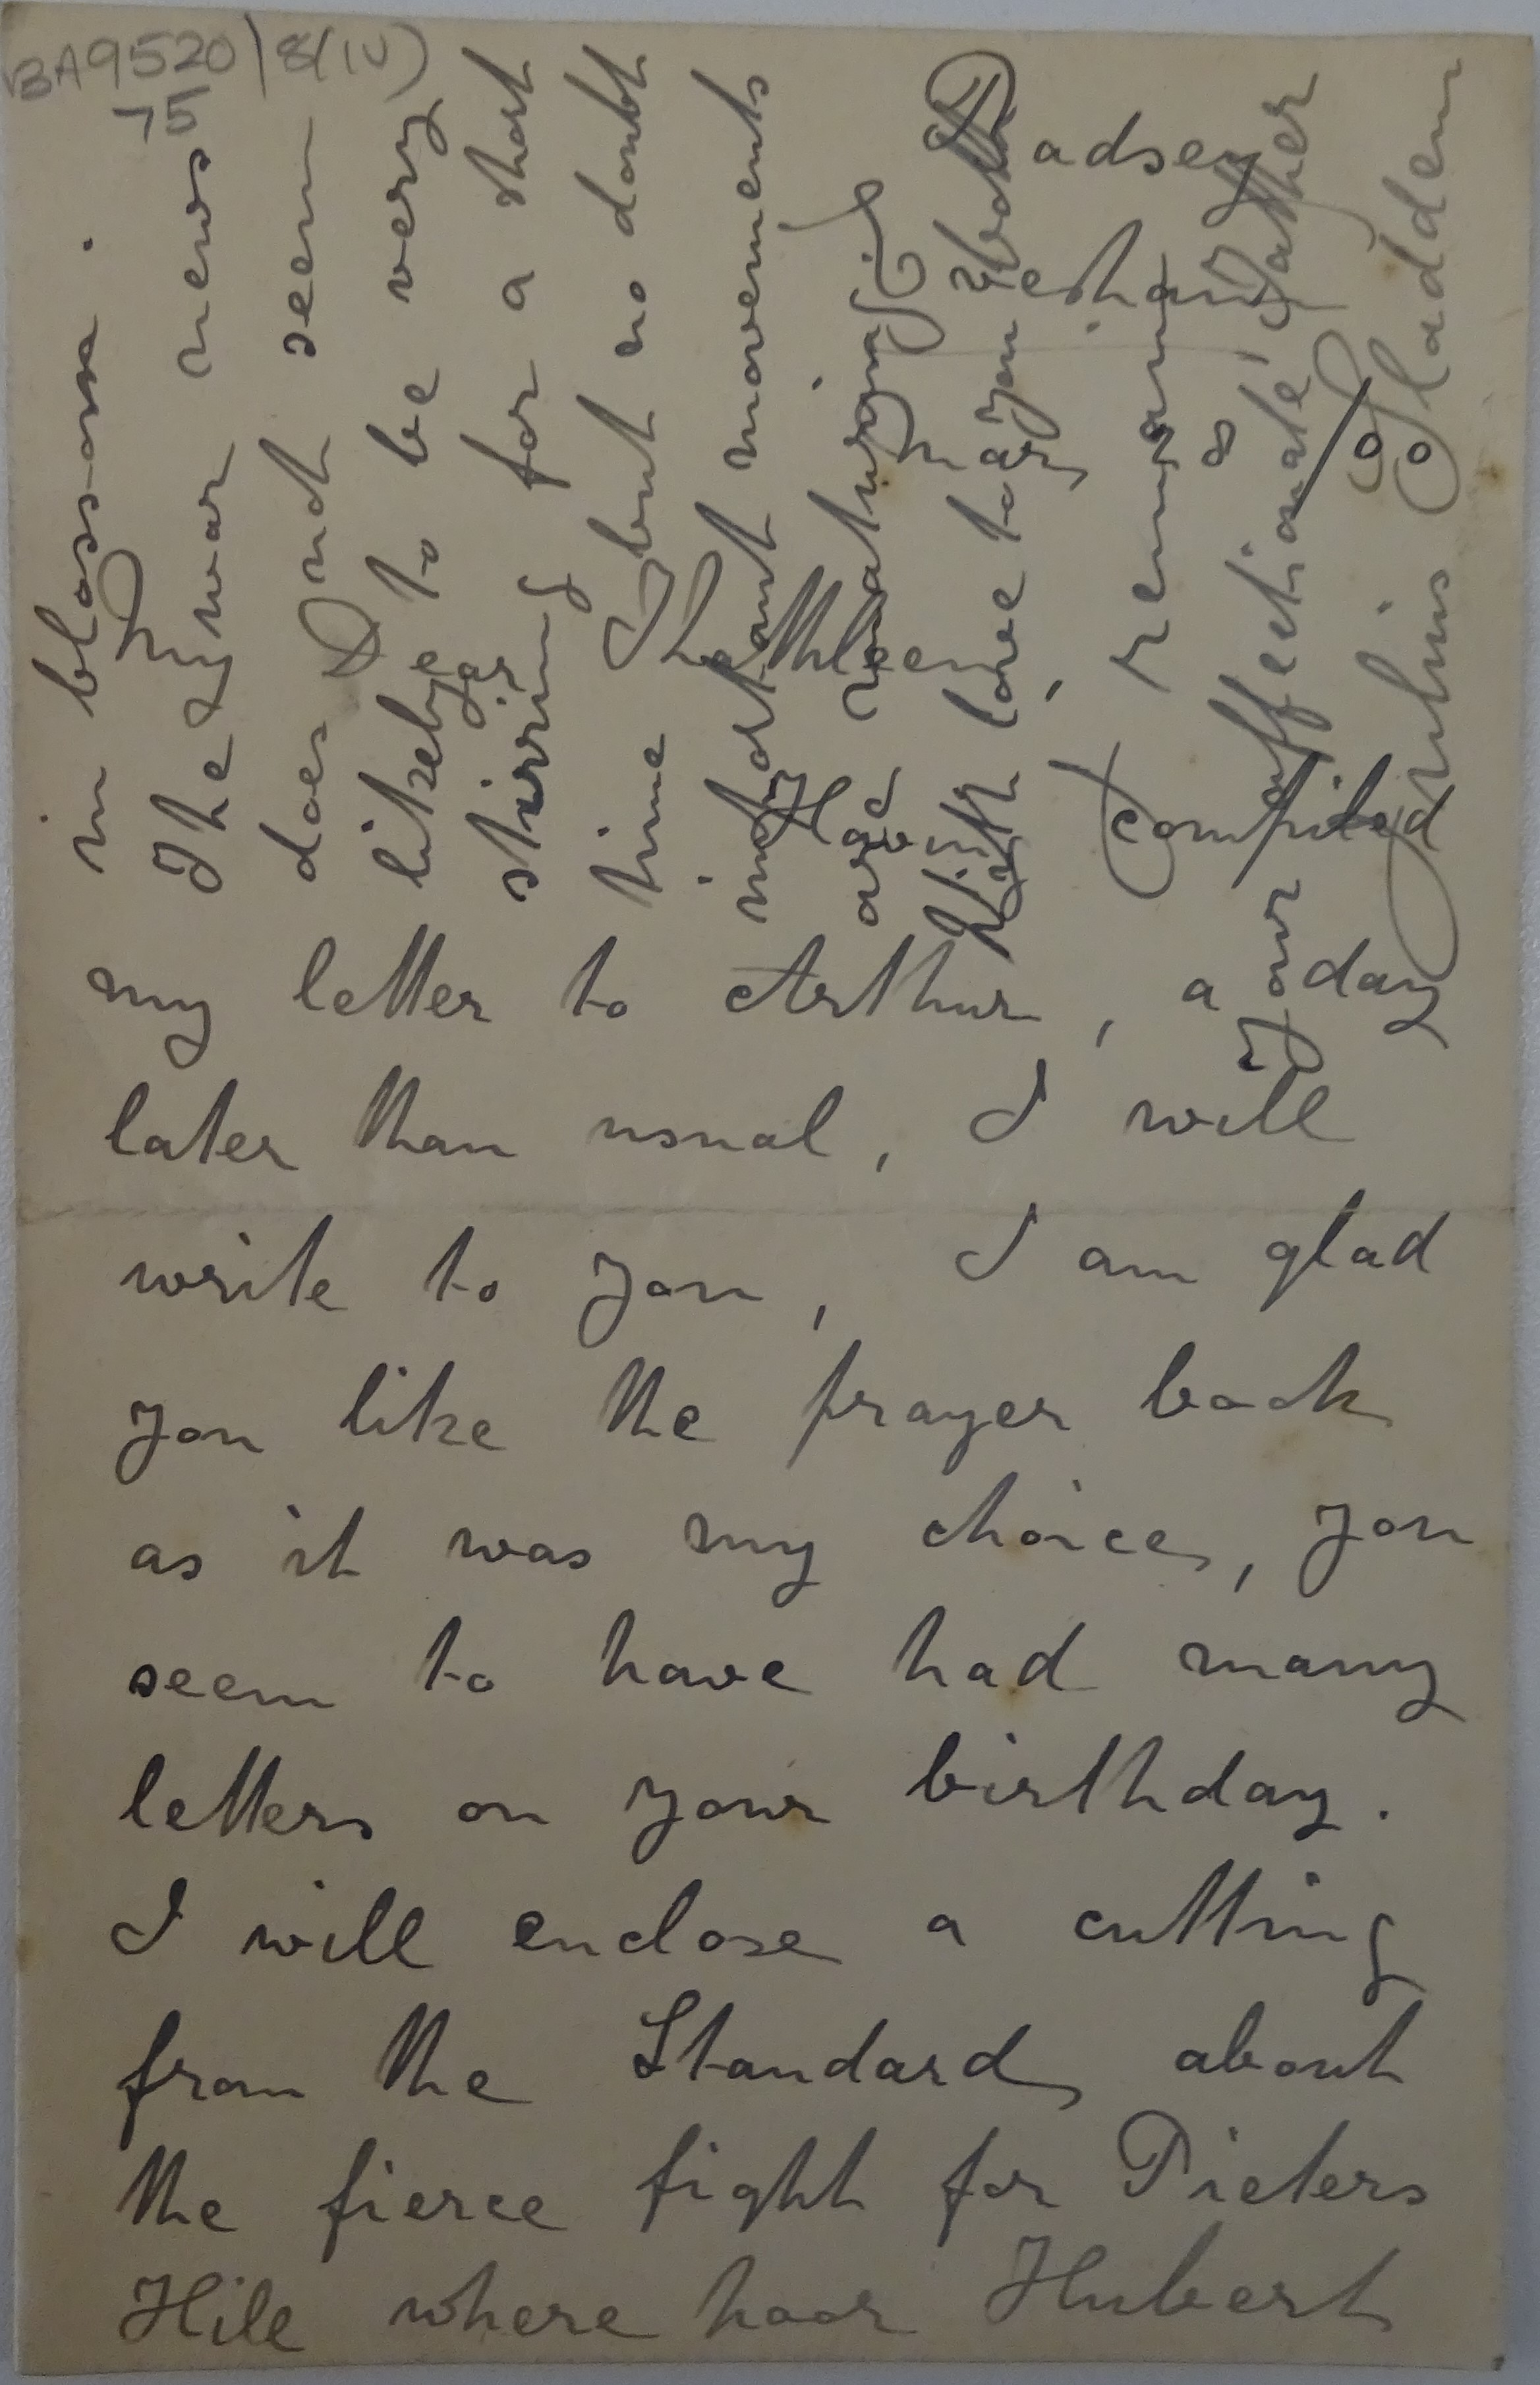 BA9520/8(iv)
75
Badsey
Evesham
Mar
My Dear
Kathleen,
Having completed
my letter to Arthur, a day
later than usual, I will
write to you, I am glad
you like the prayer book
as it was my choice, you
seem to have had many
letters on your birthday.
I will enclose a cutting
from the Standard about
the fierce fight for Pieters
Hill where poor Hubert
in blossom.
The war news
does not seem
likely to be very
stirring for a short
time but no doubt
important movements
are maturing
With love to you both
remains
Your affectionate Father
Julius Sladden